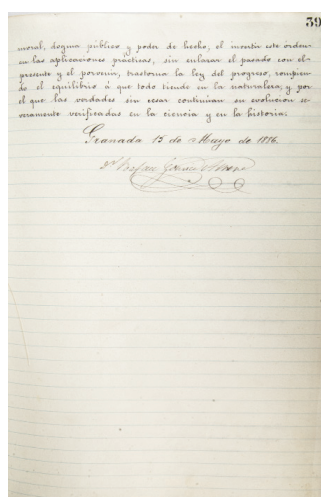 39
moral, dogma público y poder de hecho, el invertir este orden
en las aplicaciones prácticas, sin enlazar el pasado con el
presente y el porvenir, trastorna la ley del progreso, rompien-
do el equilibrio á que todo tiende en la naturaleza, y por
el que las verdades sin cesar continúan en evolucion se-
veramente verificadas en la ciencia y en la historia.
Granada 15 de Mayo de 1886.